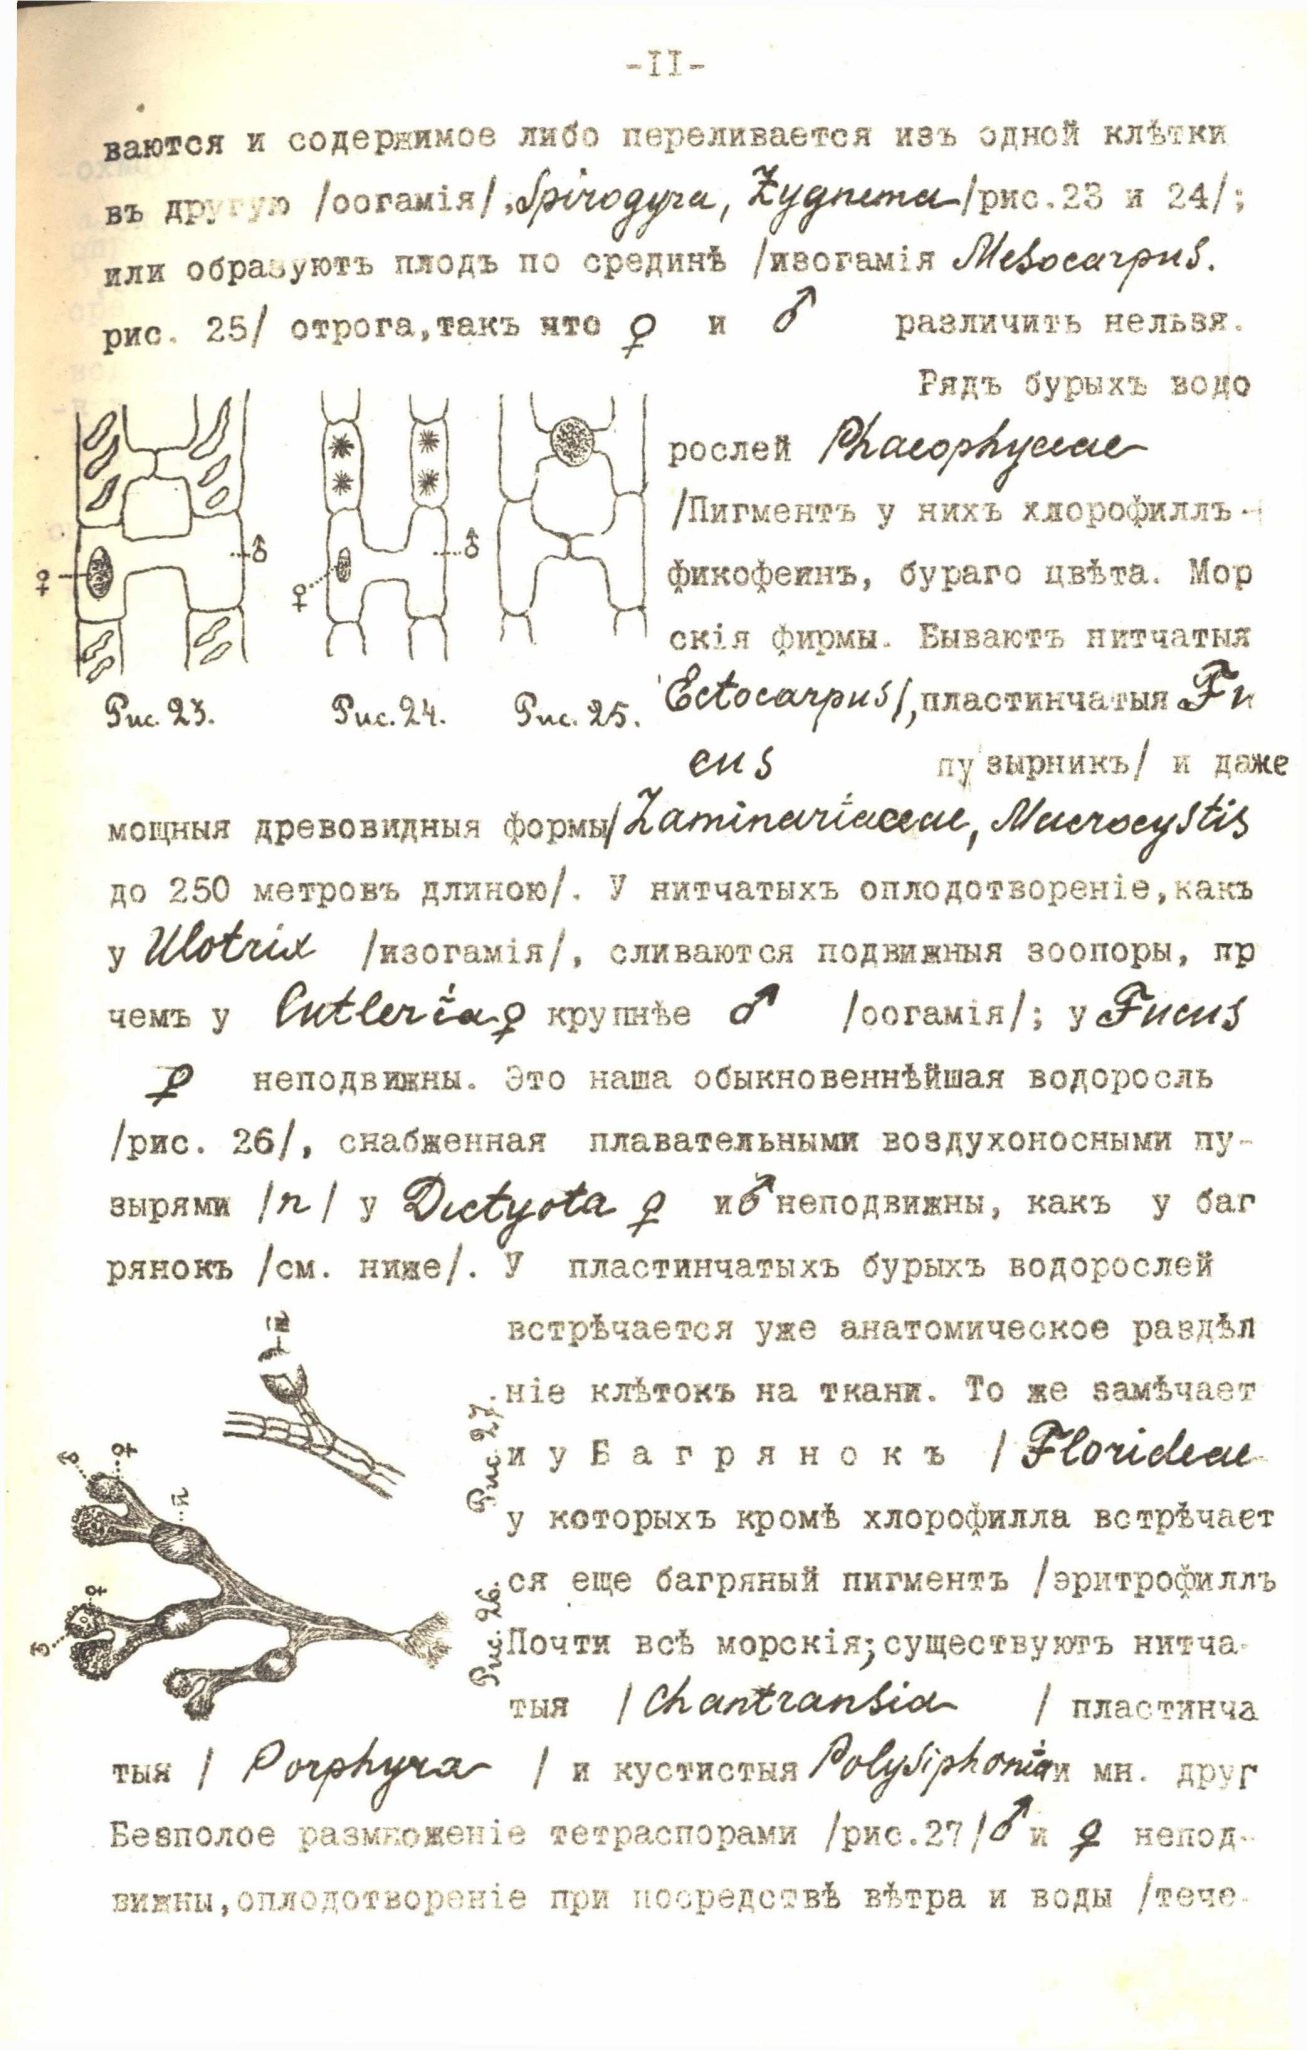 -II-
ваются и содержимое либо переливается изъ одной клѣтки
въ другую /оогамія/,Spirogyra, Zygnema /рис.23 и 24/;
или образуютъ плодъ по срединѣ /изогамія Mesocarpus.
рис. 25/ отрога,такъ что ♀ и ♂ различить нельзя.
Рядъ бурыхъ водо
рослей Phaeophyceae
/Пигментъ у нихъ хлорофиллъ -
фикофеинъ, бураго цвѣта. Мор
скія фирмы. Бываютъ нитчатыя
Ectocarpus/,пластинчатыя Fu
cus пузырникъ/ и даже
♀ ♂ ♀ ♂
Рис. 23. Рис. 24. Рис. 25.
мощныя древовидныя формы/Laminariaceae, Macrocystis
до 250 метровъ длиною/. У нитчатыхъ оплодотвореніе,какъ
у Ulotrix /изогамія/, сливаются подвижныя зоопоры, пр
чемъ у Cutleria ♀ крупнѣе ♂ /оогамія/; у Fucus
♀ неподвижны. Это наша обыкновеннѣйшая водоросль
/рис. 26/, снабженная плавательными воздухоносными пу-
зырями /п/ у Dictyota ♀ и ♂ неподвижны, какъ у баг
рянокъ /см. ниже/. У пластинчатыхъ бурыхъ водорослей
встрѣчается уже анатомическое раздѣл
ніе клѣтокъ на ткани. То же замѣчает
и у Б а г р я н о к ъ / Florideae
у которыхъ кромѣ хлорофилла встрѣчает
ся еще багряный пигментъ /эритрофиллъ
Почти всѣ морскія;существуютъ нитча-
тыя / Chantransia / пластинча
Рис. 27.
♂ ♀ п
♀ ♂
Рис. 26.
тыя / Porphyra / и кустистыя Polysiphonia и мн. друг
Безполое размноженіе тетраспорами /рис.27/ ♂ и ♀ непод-
вижны,оплодотвореніе при посредствѣ вѣтра и воды /тече-